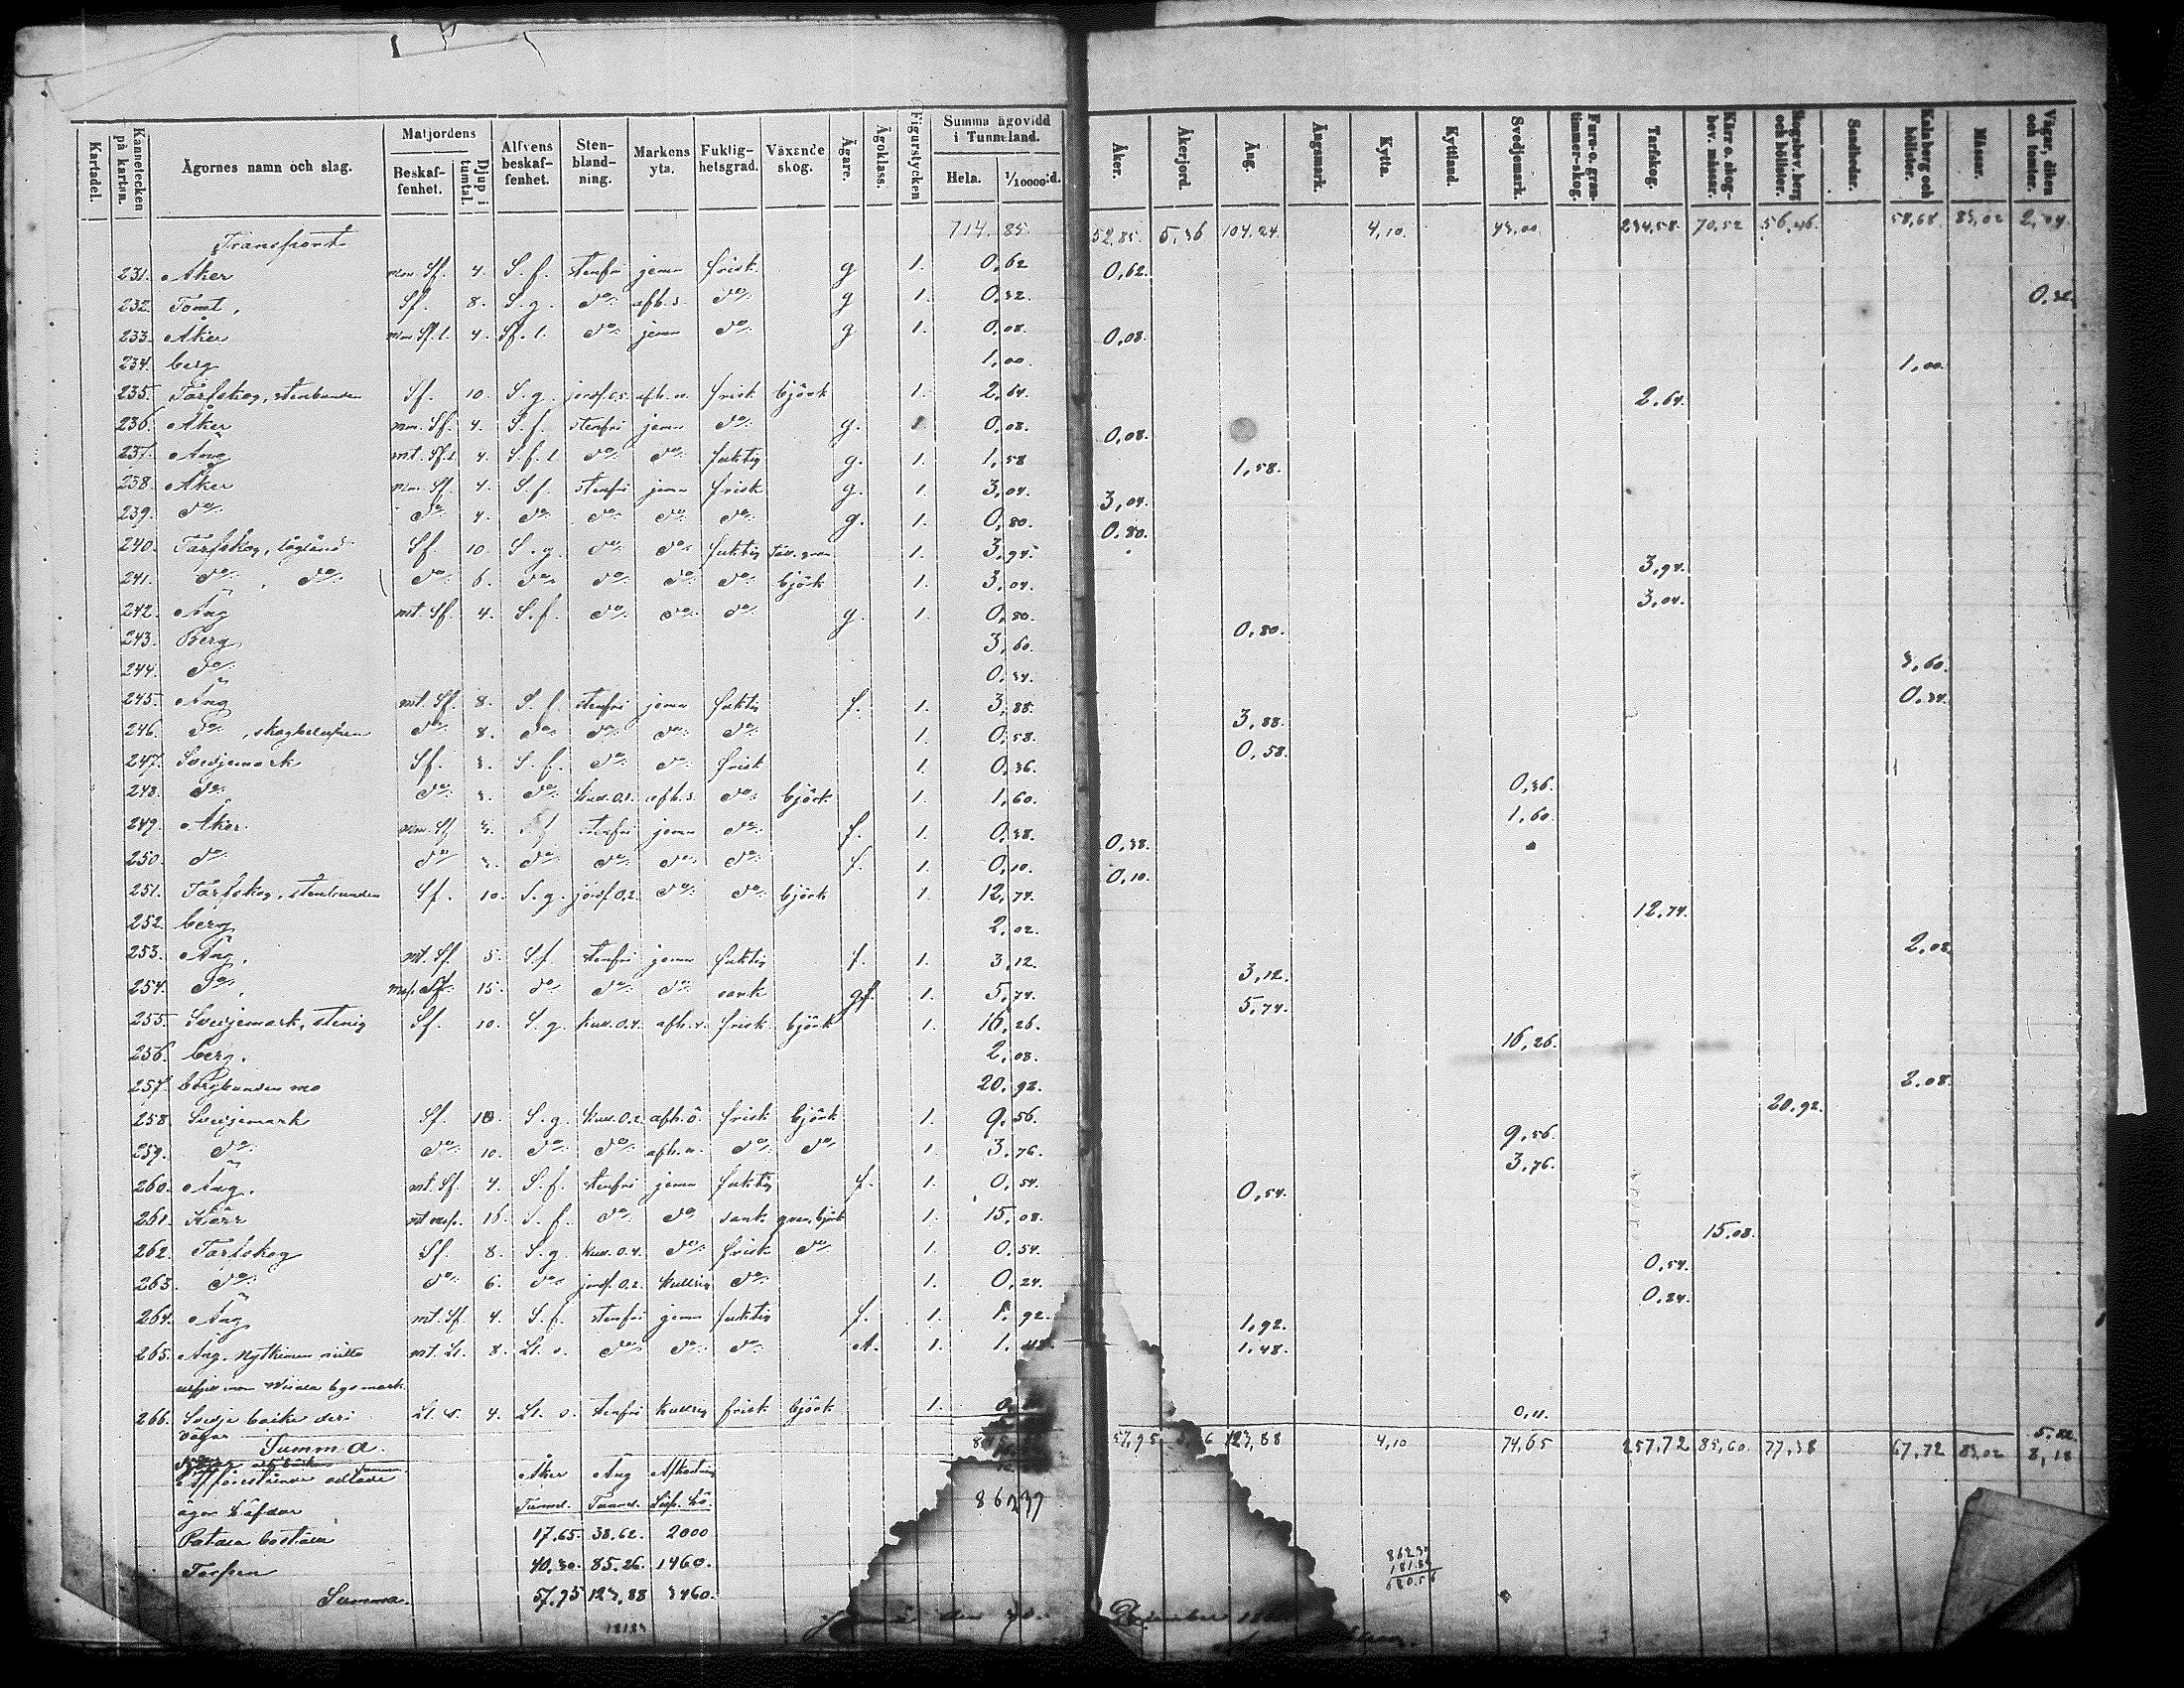 Kartadel. Kännetecken på kartan. Ägornes namn och slag. Matjordens Beskaffenhet. Djup i tumtal. Alfvens beskaffenhet. Stenblandning. Markens yta. Fuktighetsgrad. Växande skog. Ägare. Ägoklass. Figurstycken Summa ägovidd i Tunneland. Hela. 1/10000:d. Åker. Åkerjord. Äng. Ängsmark. Kytta. Kyttland. Svedjemark. Furu- o. gran-timmer-skog. Tarfskog. Kärr o. skogbev. mässar. Skogsbev. berg och hällister. Sandhedar. Kala berg och hällister. Mässar. Vägar, diken och tomter.
Transport 714. 85. 52,85. 5,36 104,24. 4,10. 43,00. 234,58. 70,52 56,46. 58,68. 83,02 2,04.
231. Åker mm. Sf. 4. S. f. stenfri jemn frisk g 1. 0,62 0,62.
232. Tomt, Sf. 8. S. g. d:o afh. s. d:o g 1. 0,32. 0,32.
233. Åker mm Sf. l. 4. Sf. l. d:o jemn d:o g 1. 0,08. 0,08.
234. berg 1,00. 1,00.
235. Tarfskog, stenbunden Sf. 10. S. g. jordf. 0,5. afh. n. frisk björk 1. 2,64. 2.64.
236. Åker mm. Sf. 4. S. f. stenfri jemn d:o g. 1 0,08. 0,08.
237. Äng mt. Sf. l. 4. S. f. l d:o d:o fuktig g. 1. 1,58 1,58.
238. Åker mm. Sf. 4. S. f. stenfri jemn frisk g. 1. 3,04. 3,04.
239. d:o d:o 4. d:o d:o d:o d:o g. 1. 0,80. 0,80.
240. Tarfskog, lågländ Sf. 10. S. g. d:o d:o fuktig tall. gran 1. 3,94. 3,94.
241. d:o, d:o d:o 6. d:o d:o d:o d:o björk 1. 3,04. 3,04.
242. Äng mt. Sf. 4. S. f. d:o d:o d:o g. 1. 0,80. 0,80.
243. Berg 3,60. 3,60.
244. d:o 0,34. 0,34.
245. Äng mt. Sf. 8. S. f. stenfri jemn fuktig f. 1. 3,88. 3,88.
246. d:o, skogbelupen d:o 8. d:o d:o d:o d:o 1. 0,58. 0,58.
247. Svedjemark Sf. 3. S. f. d:o d:o frisk 1. 0,36. 0,36.
248. d:o d:o 3. d:o kull. 0,2. afh. s. d:o björk 1. 1,60. 1,60.
249. Åker. mm. Sf 3. stenfri jemn d:o f. 1. 0,38. 0,38.
250. d:o d:o 3. d:o d:o d:o d:o f. 1. 0,10. 0,10.
251. Tarfskog, stenbunden Sf. 10. S. g. jordf 0,2. d:o d:o björk 1. 12,74. 12,74.
252. berg 2,02. 2,02
253. Äng. mt. Sf. 5. S. f. stenfri jemn fuktig f. 1. 3,12. 3,12.
254. d:o mosf. Sf. 15. d:o d:o d:o sank g f. 1. 5,74. 5,74.
255. Svedjemark, stenig Sf. 10. S. g. kull. 0,4. afh. v. frisk björk 1. 16,26. 16,26.
256. berg. 2,08. 2,08.
257. bergbunden mo 20,92. 20,92.
258. Svedjemark Sf. 10. S. g. kull. 0,2. afh. ö. frisk björk 1. 9,56. 9,56.
259. d:o d:o 10. d:o d:o afh. n. d:o d:o 1. 3,76. 3,76.
260. Äng. mt. Sf 4. S. f. stenfri jemn fuktig f. 1. 0,54. 0,54.
261. Kärr mt mosf. 16. S. f. d:o d:o sank gran, björk 1. 15,08. 15,08.
262. Tarfskog Sf. 8. S. g kull. 0,4. d:o frisk d:o 1. 0,54. 0,54.
263. d:o d:o 6. d:o jordf. 0,2. kullrig d:o 1. 0,24. 0,24.
264. Äng mt. Sf. 4. S. f. stenfri jemn fuktig f. 1. 1,92. 1,92.
265. Äng. mt. Ll. 8. Ll. s. d:o d:o d:o 1. 1,48. 1,48.
bys mark.
266. Svedje Ll. s. 4. Ll. s. stenfri kullrig frisk björk 1. 0,11.
vägar 5.82.
Summa. 57,95 123,88 4,10 74,65 257,72 85,60. 77,38 67,72 83,02 8,18
förestående odlade Åker Äng Afkastning
ägor häfdar Tunnel. Tunnel. Lisp. hö.
Patala boställe 17,65. 38.62. 2000 862 37
40,30. 85.26. 1460.
Summa. 57,95 123,88 3460.
862.37
181.81
680.56
181.81
den 30. December